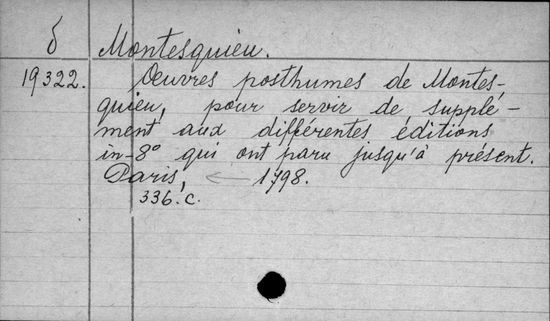 δ Montesquieu.
19322. Oeuvres posthumes de Montes-
quieu, pour servir de supplé-
ment aux différentes éditions
in-8° qui ont paru jusqu'à présent.
Paris, ← 1798.
336. c.